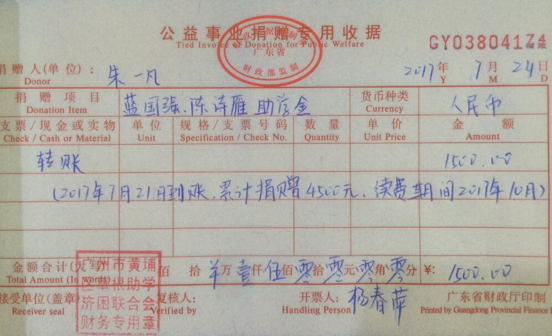 公益事业捐赠专用收据
Tied Invoice of Donation for Public Welfare
广东省
财政部监制
GY03804174
捐赠人(单位): 朱一凡
Donor
2017年 7月 24日
Y M D
捐赠项目 蓝国强、陈诗雁助学金 货币种类 人民币
Donation Item Currency
支票/现金或实物 单位 规格/支票号码 数量 单价 金额
Check / Cash or Material Unit Specification / Check No. Quantity Unit Price Amount
转账 1500.00
(2017年7月21日到账、累计捐赠4500元、续费期间2017年10月)
金额合计(大写) 佰 拾 万壹仟伍佰零拾零元零角零分 ¥: 1500.00
Total Amount (In Words)
接受单位(盖章) 复核人: 开票人: 杨春萍 广东省财政厅印制
Receiver seal Verified by Handling Person Printed by Guangdong Provincial Finance
广州市黄埔
区草根助学
济困联合会
财务专用章